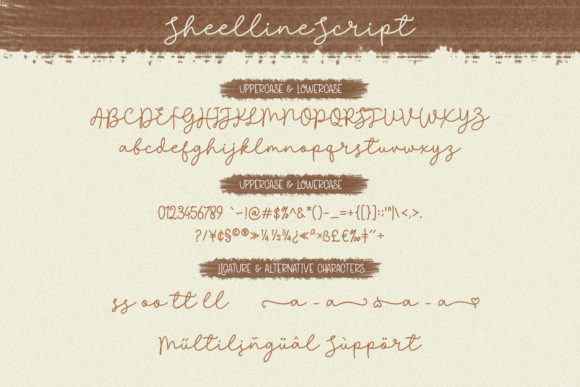 Sheelline Script
UPPERCASE & LOWERCASE
ABCDEFGHIJKLMNOPQRSTUVWXYZ
abcdefghijklmnopqrstuvwxyz
UPPERCASE & LOWERCASE
0123456789 `~!@#$%^&*()-_=+{[}]:;'"|\<,>.
?/¥¢§©®»¼½¾¿«ª×ß£€‰‡¨÷
LIGATURE & ALTERNATIVE CHARACTERS
ss oo tt ll a - a a - a
Mültilįñgüâl Sùppört